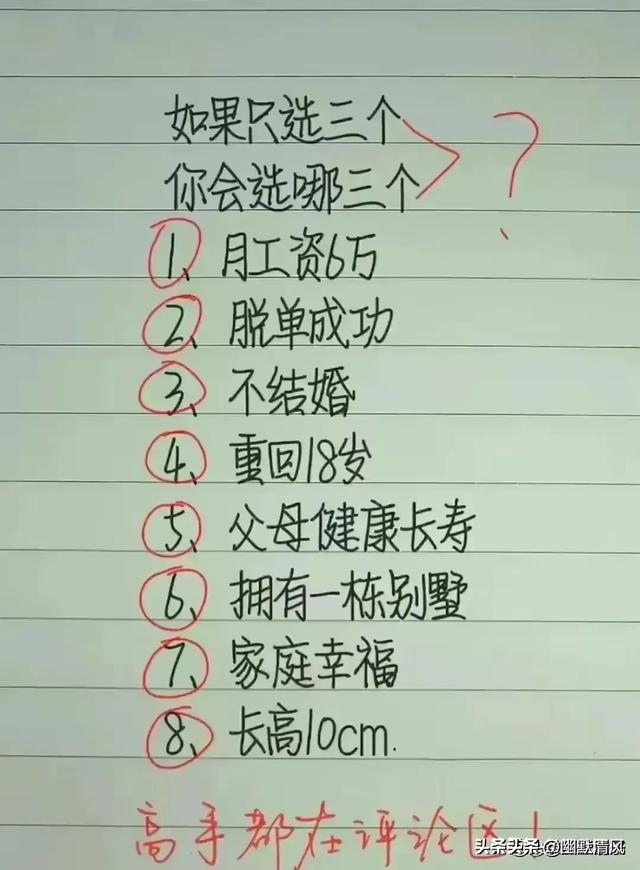 如果只选三个
你会选哪三个
?
1、月工资6万
2、脱单成功
3、不结婚
4、重回18岁
5、父母健康长寿
6、拥有一栋别墅
7、家庭幸福
8、长高10cm.
高手都在评论区！
头条头条 @幽默清风